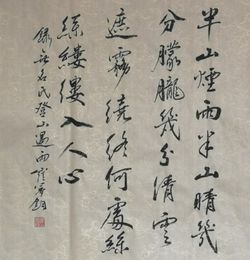 半山煙雨半山晴幾
分朦朧幾分清雲
遮霧繞終何處絲
絲縷縷入人心
錄無名氏登山遇雨